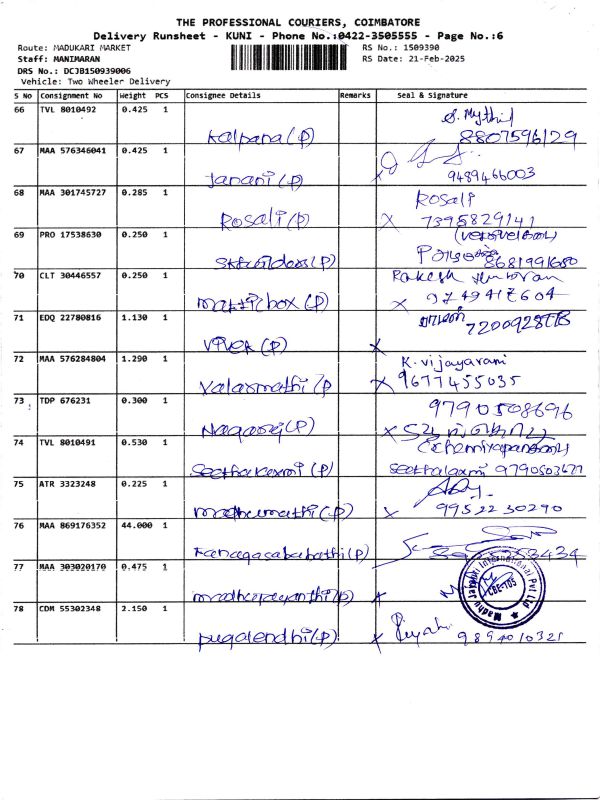 THE PROFESSIONAL COURIERS, COIMBATORE
Delivery Runsheet - KUNI - Phone No.:0422-3505555 - Page No.:6
Route: MADUKARI MARKET
RS No.: 1509390
Staff: MANIMARAN
RS Date: 21-Feb-2025
DRS No.: DCJB150939006
Vehicle: Two Wheeler Delivery
S No Consignment No Weight PCS Consignee Details Remarks Seal & Signature
66 TVL 8010492 0.425 1
Kalpana (P) 8807596129
67 MAA 576346041 0.425 1
Janani (P) x 9489466003
68 MAA 301745727 0.285 1 Rosali
Rosali (P) x 7395829141
69 PRO 17538630 0.250 1
(P) 8681991680
70 CLT 30446557 0.250 1 Rakesh
box (P) x
71 EDQ 22780816 1.130 1
(P) x
72 MAA 576284804 1.290 1 K. Vijayarani
Valarmathi (P x 9677455035
73 TDP 676231 0.300 1 9790508696
Nagaraj (P) x
74 TVL 8010491 0.530 1
Seethalaxmi (P) Seethalaxmi 9790503677
75 ATR 3323248 0.225 1
madhumathi (P) x 9952230290
76 MAA 869176352 44.000 1
Kanagasababathi (P)
77 MAA 303020170 0.475 1
(P) x
International Pvt Ltd
CBE-105
78 CDM 55302348 2.150 1
pugalendhi (P) x 9894010321